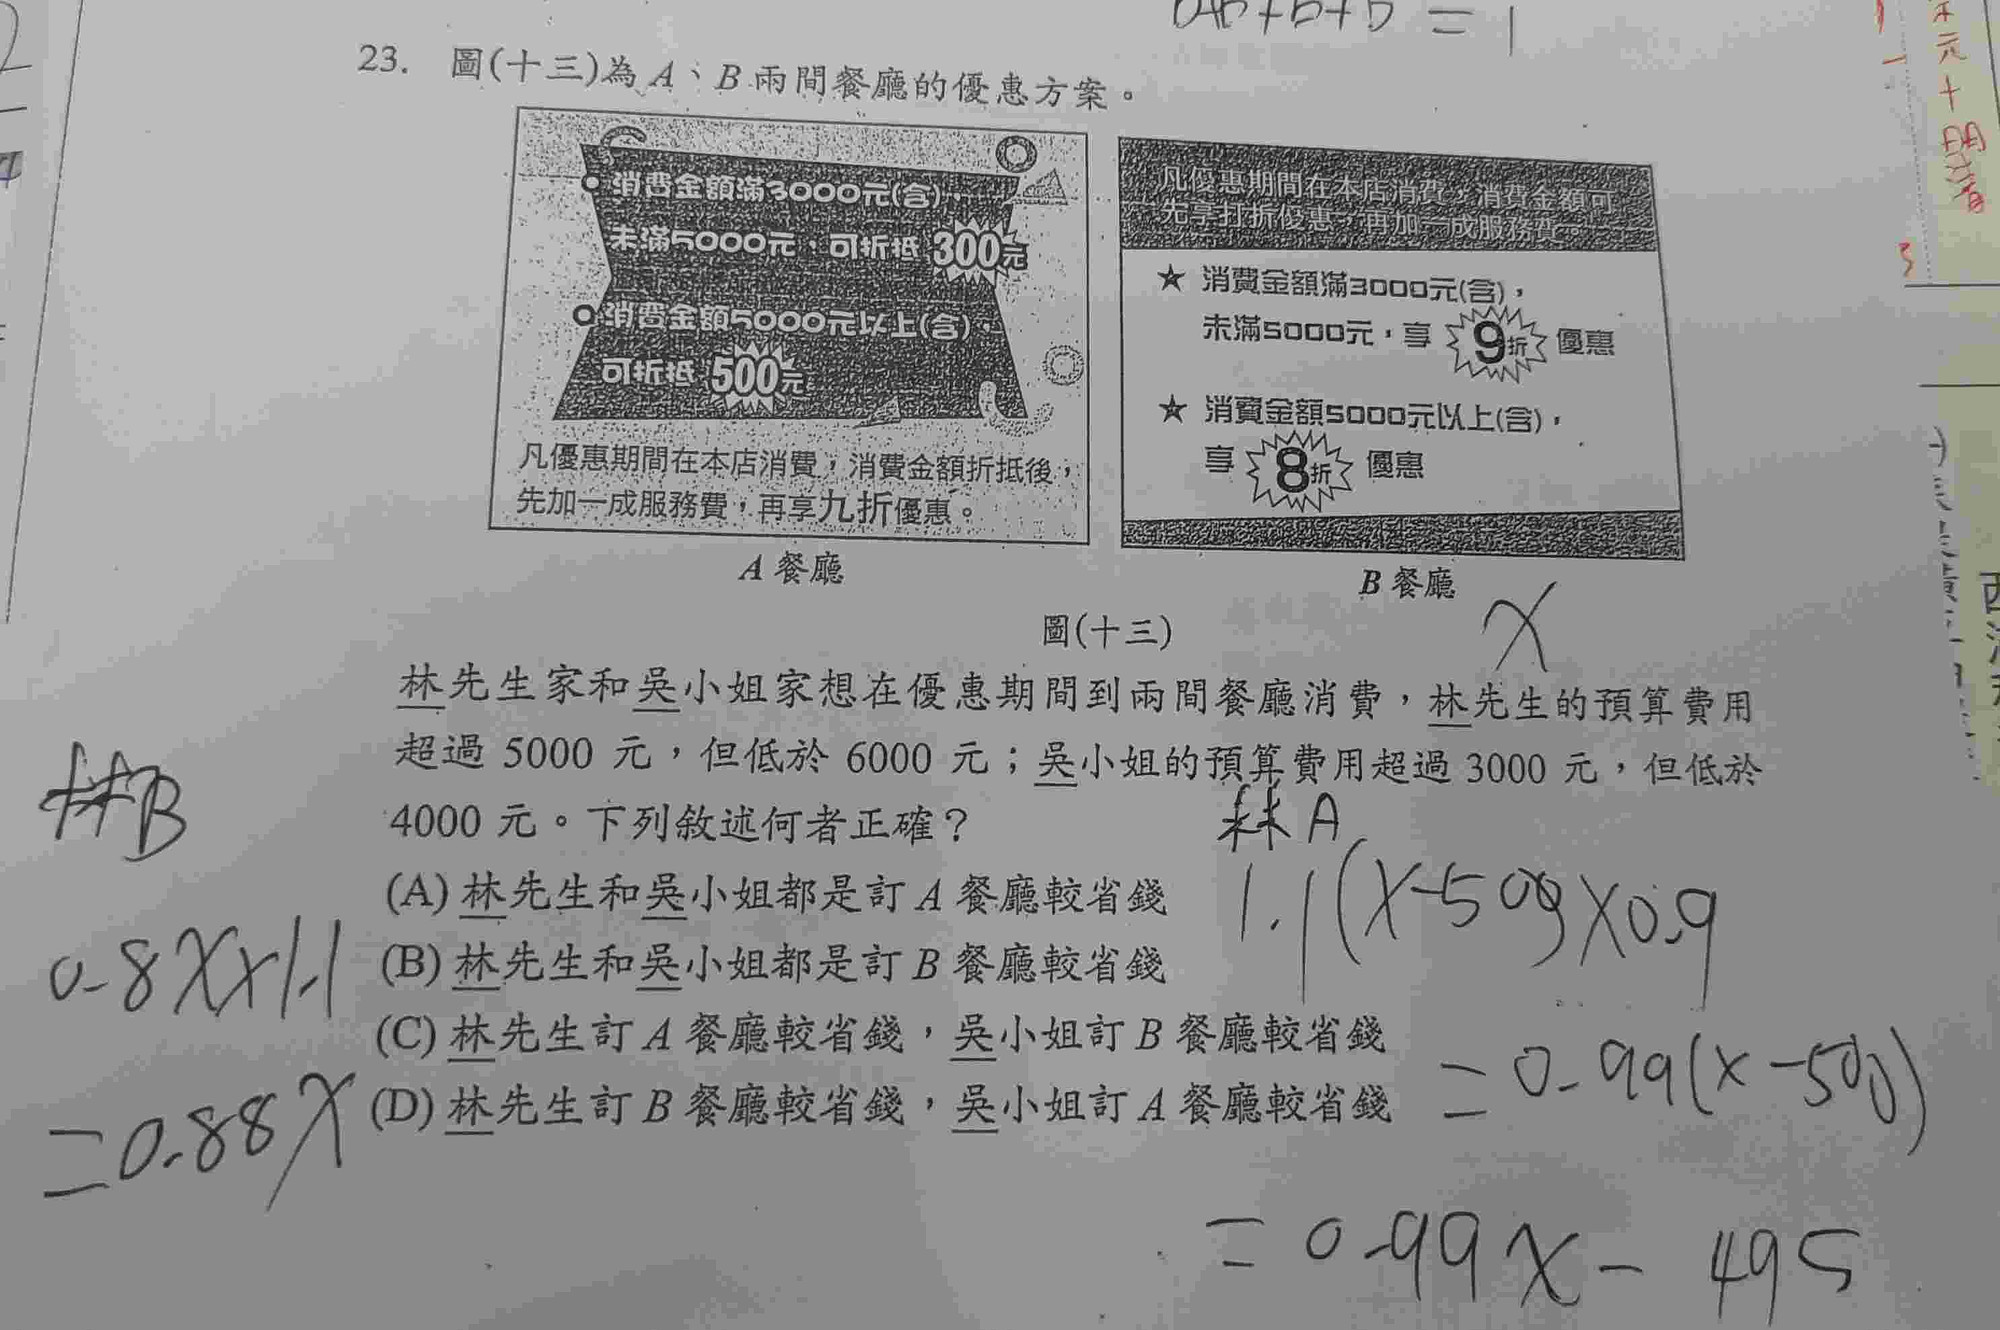 23. 圖(十三)為 A、B 兩間餐廳的優惠方案。
• 消費金額滿3000元(含)，
未滿5000元，可折抵 300元
• 消費金額5000元以上(含)，
可折抵 500元
凡優惠期間在本店消費，消費金額折抵後，
先加一成服務費，再享九折優惠。
A 餐廳
凡優惠期間在本店消費，消費金額可
先享打折優惠，再加一成服務費。
★ 消費金額滿3000元(含)，
未滿5000元，享 9折 優惠
★ 消費金額5000元以上(含)，
享 8折 優惠
B 餐廳
圖(十三)
x
林先生家和吳小姐家想在優惠期間到兩間餐廳消費，林先生的預算費用
超過 5000 元，但低於 6000 元；吳小姐的預算費用超過 3000 元，但低於
4000 元。下列敘述何者正確？
(A) 林先生和吳小姐都是訂 A 餐廳較省錢
(B) 林先生和吳小姐都是訂 B 餐廳較省錢
(C) 林先生訂 A 餐廳較省錢，吳小姐訂 B 餐廳較省錢
(D) 林先生訂 B 餐廳較省錢，吳小姐訂 A 餐廳較省錢
林B
0.8x×1.1
=0.88x
林A
1.1(x-500)×0.9
=0.99(x-500)
=0.99x-495